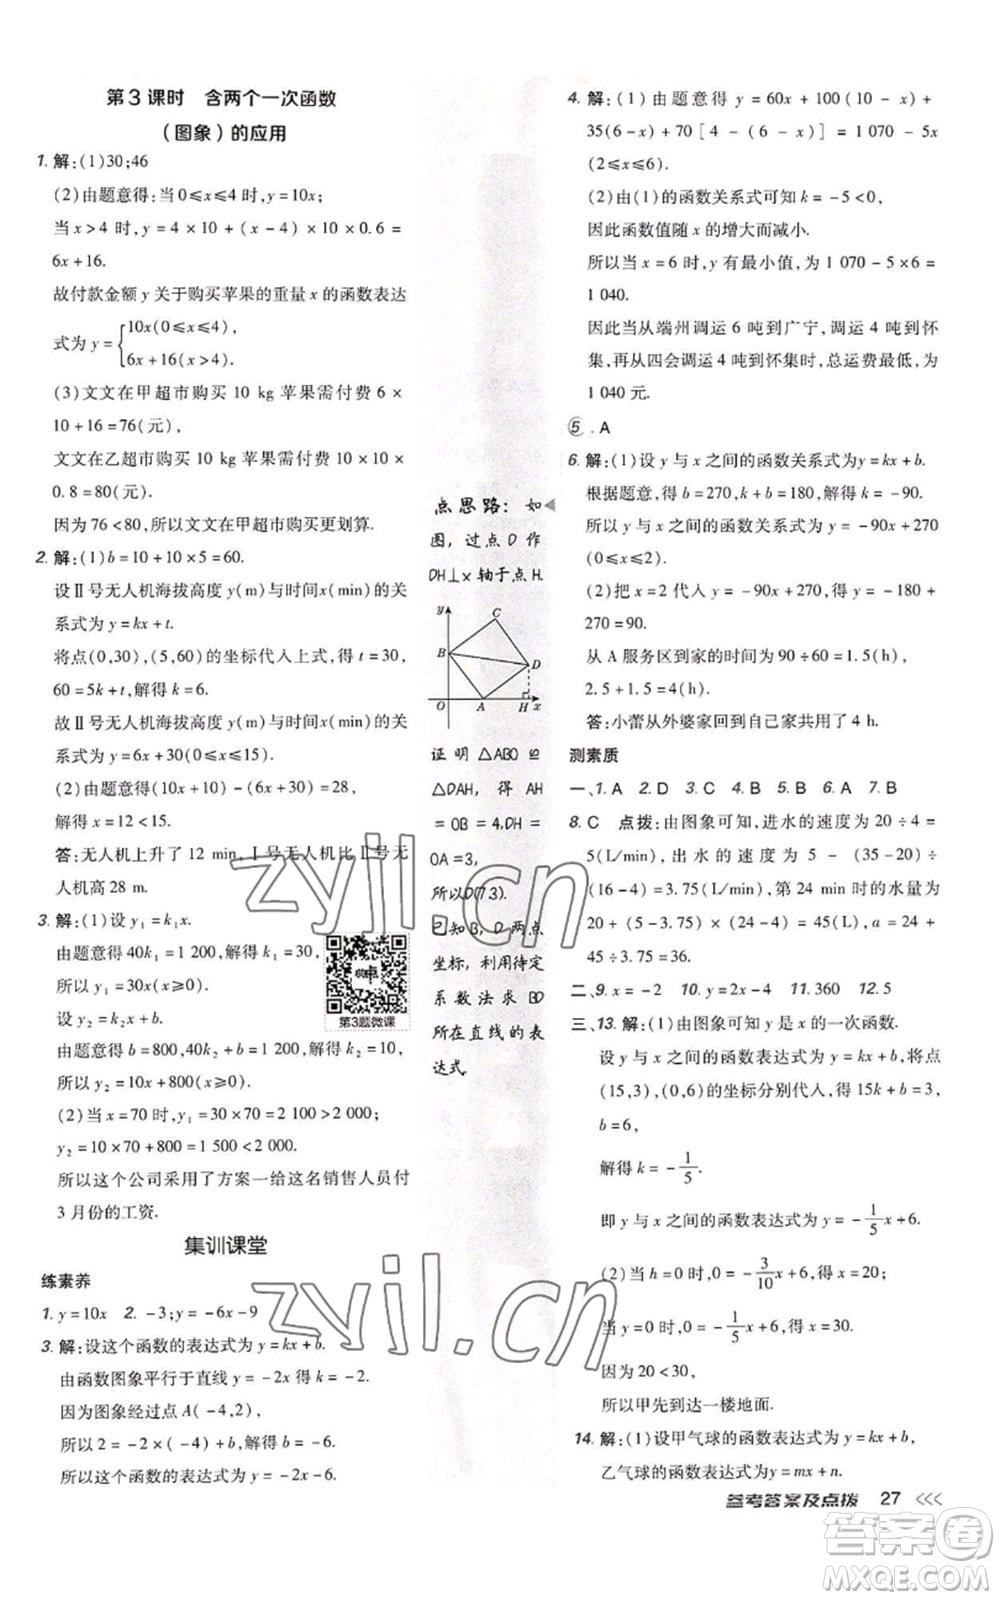 第3课时 含两个一次函数
（图象）的应用
1. 解:(1)30;46
(2)由题意得:当0≤x≤4时,y=10x;
当x>4时,y=4×10+(x-4)×10×0.6=
6x+16.
故付款金额y关于购买苹果的重量x的函数表达
式为y={10x(0≤x≤4),
6x+16(x>4).
(3)文文在甲超市购买10 kg苹果需付费6×
10+16=76(元),
文文在乙超市购买10 kg苹果需付费10×10
×0.8=80(元).
因为76<80,所以文文在甲超市购买更划算.
2. 解:(1)b=10+10×5=60.
设Ⅱ号无人机海拔高度y(m)与时间x(min)的关
系式为y=kx+t.
将点(0,30),(5,60)的坐标代入上式,得t=30,
60=5k+t,解得k=6.
故Ⅱ号无人机海拔高度y(m)与时间x(min)的关
系式为y=6x+30(0≤x≤15).
(2)由题意得(10x+10)-(6x+30)=28,
解得x=12<15.
答:无人机上升了12 min,Ⅰ号无人机比Ⅱ号无
人机高28 m.
3. 解:(1)设y₁=k₁x.
由题意得40k₁=1 200,解得k₁=30,
所以y₁=30x(x≥0).
设y₂=k₂x+b.
由题意得b=800,40k₂+b=1 200,解得k₂=10,
所以y₂=10x+800(x≥0).
(2)当x=70时,y₁=30×70=2 100>2 000;
y₂=10×70+800=1 500<2 000.
所以这个公司采用了方案一给这名销售人员付
3月份的工资.
第3题微课
集训课堂
练素养
1. y=10x 2. -3;y=-6x-9
3. 解:设这个函数的表达式为y=kx+b.
由函数图象平行于直线y=-2x,得k=-2.
因为图象经过点A(-4,2),
所以2=-2×(-4)+b,解得b=-6.
所以这个函数的表达式为y=-2x-6.
点思路:如
图,过点D作
DH⊥x轴于点H.
y
C
B
D
O A H x
证明△ABO≌
△DAH,得AH
=OB=4,DH=
OA=3,
所以D(7,3).
已知B,D两点
坐标,利用待定
系数法求BD
所在直线的表
达式.
4. 解:(1)由题意得y=60x+100(10-x)+
35(6-x)+70[4-(6-x)]=1 070-5x
(2≤x≤6).
(2)由(1)的函数关系式可知k=-5<0,
因此函数值随x的增大而减小.
所以当x=6时,y有最小值,为1 070-5×6=
1 040.
因此当从端州调运6吨到广宁,调运4吨到怀
集,再从四会调运4吨到怀集时,总运费最低,为
1 040元.
5. A
6. 解:(1)设y与x之间的函数关系式为y=kx+b.
根据题意,得b=270,k+b=180,解得k=-90.
所以y与x之间的函数关系式为y=-90x+270
(0≤x≤2).
(2)把x=2代入y=-90x+270,得y=-180
+270=90.
从A服务区到家的时间为90÷60=1.5(h),
2.5+1.5=4(h).
答:小蕾从外婆家回到自己家共用了4 h.
测素质
一、1. A 2. D 3. C 4. B 5. B 6. A 7. B
8. C 点拨:由图象可知,进水的速度为20÷4=
5(L/min),出水的速度为5-(35-20)÷
(16-4)=3.75(L/min),第24 min时的水量为
20+(5-3.75)×(24-4)=45(L),a=24+
45÷3.75=36.
二、9. x=-2 10. y=2x-4 11. 360 12. 5
三、13. 解:(1)由图象可知y是x的一次函数.
设y与x之间的函数表达式为y=kx+b,将点
(15,3),(0,6)的坐标分别代入,得15k+b=3,
b=6,
解得k=-1/5.
即y与x之间的函数表达式为y=-1/5x+6.
(2)当h=0时,0=-3/10x+6,解得x=20;
当y=0时,0=-1/5x+6,解得x=30.
因为20<30,
所以甲先到达一楼地面.
14. 解:(1)设甲气球的函数表达式为y=kx+b,
乙气球的函数表达式为y=mx+n.
参考答案及点拨 27
zyjl.cn
zyjl.cn
答案圈
MXQE.COM